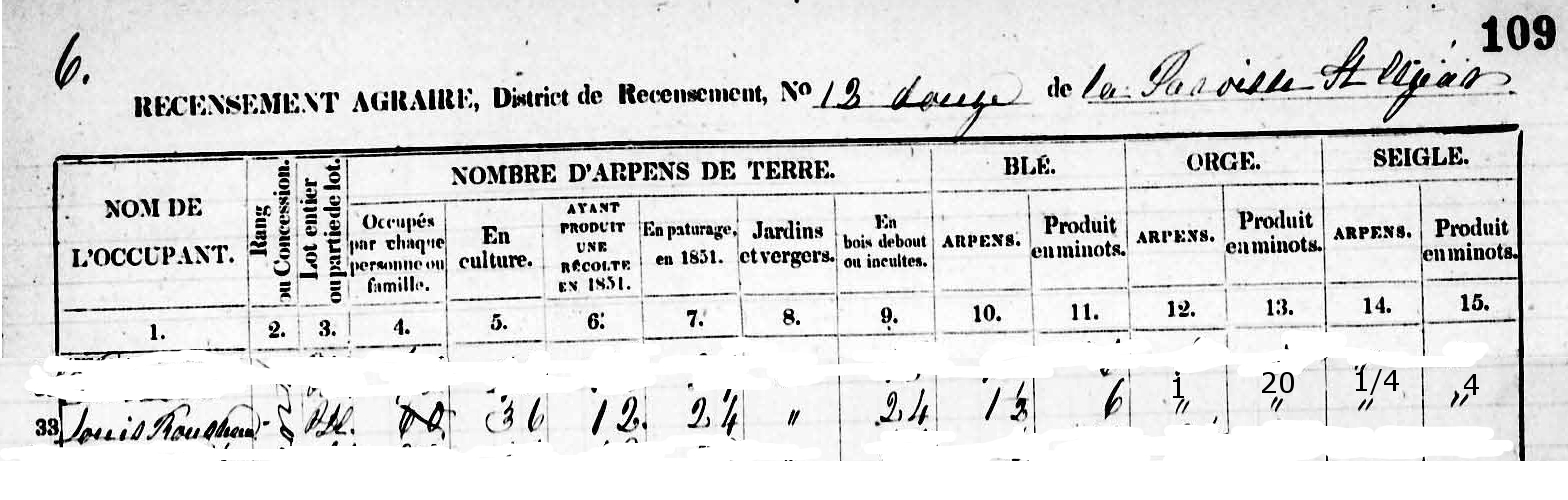 109
6.
RECENSEMENT AGRAIRE, District de Recensement, No 12 douze de la Paroisse St
NOM DE L'OCCUPANT.
Rang ou Concession.
Lot entier ou partie de lot.
NOMBRE D'ARPENS DE TERRE.
BLÉ.
ORGE.
SEIGLE.
Occupés par chaque personne ou famille.
En culture.
AYANT PRODUIT UNE RÉCOLTE EN 1851.
En paturage, en 1851.
Jardins et vergers.
En bois debout ou incultes.
ARPENS.
Produit en minots.
ARPENS.
Produit en minots.
ARPENS.
Produit en minots.
1. 2. 3. 4. 5. 6. 7. 8. 9. 10. 11. 12. 13. 14. 15.
1 20 1/4 4
33 Louis 36 12. 24 " 24 6 " " " "